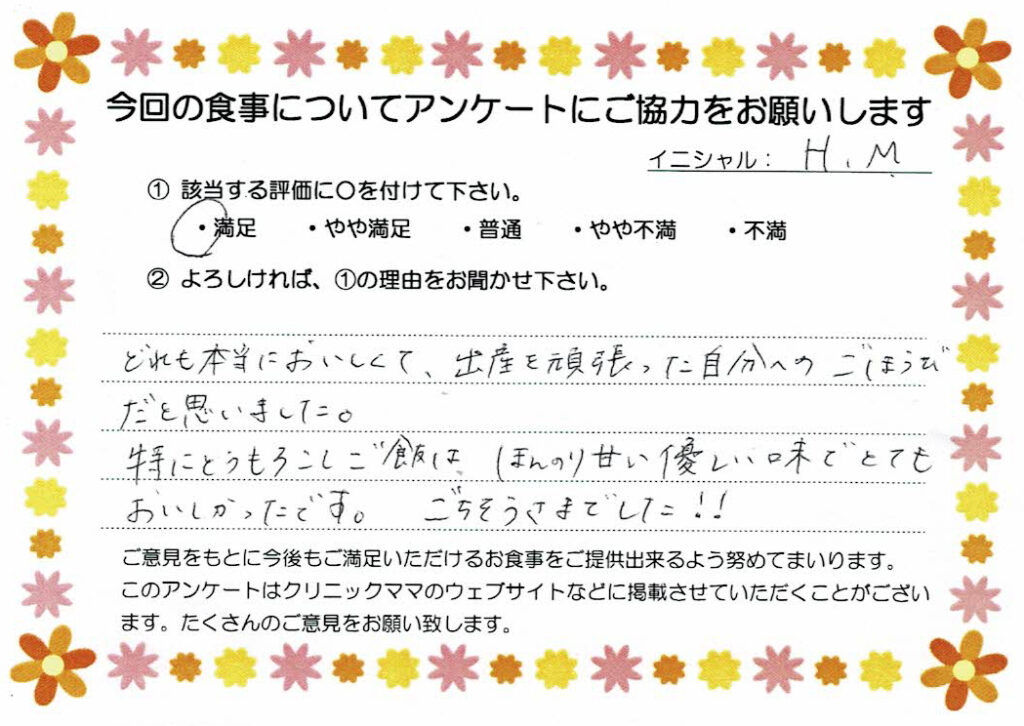 今回の食事についてアンケートにご協力をお願いします
イニシャル： H.M
① 該当する評価に〇を付けて下さい。
・満足 ・やや満足 ・普通 ・やや不満 ・不満
② よろしければ、①の理由をお聞かせ下さい。
どれも本当においしくて、出産を頑張った自分へのごほうび
だと思いました。
特にとうもろこしご飯は ほんのり甘い優しい味でとても
おいしかったです。 ごちそうさまでした!!
ご意見をもとに今後もご満足いただけるお食事をご提供出来るよう努めてまいります。
このアンケートはクリニックママのウェブサイトなどに掲載させていただくことがござい
ます。たくさんのご意見をお願い致します。